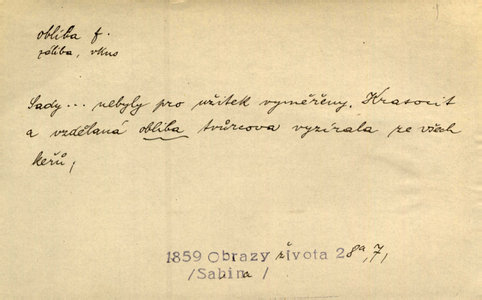 obliba f.
záliba, vkus
Sady... nebyly pro užitek vyměřeny. Krasocit
a vzdělaná obliba tvůrcova vyzírala ze všech
keřů,
1859 Obrazy života 2 8a,7,
/Sabina/